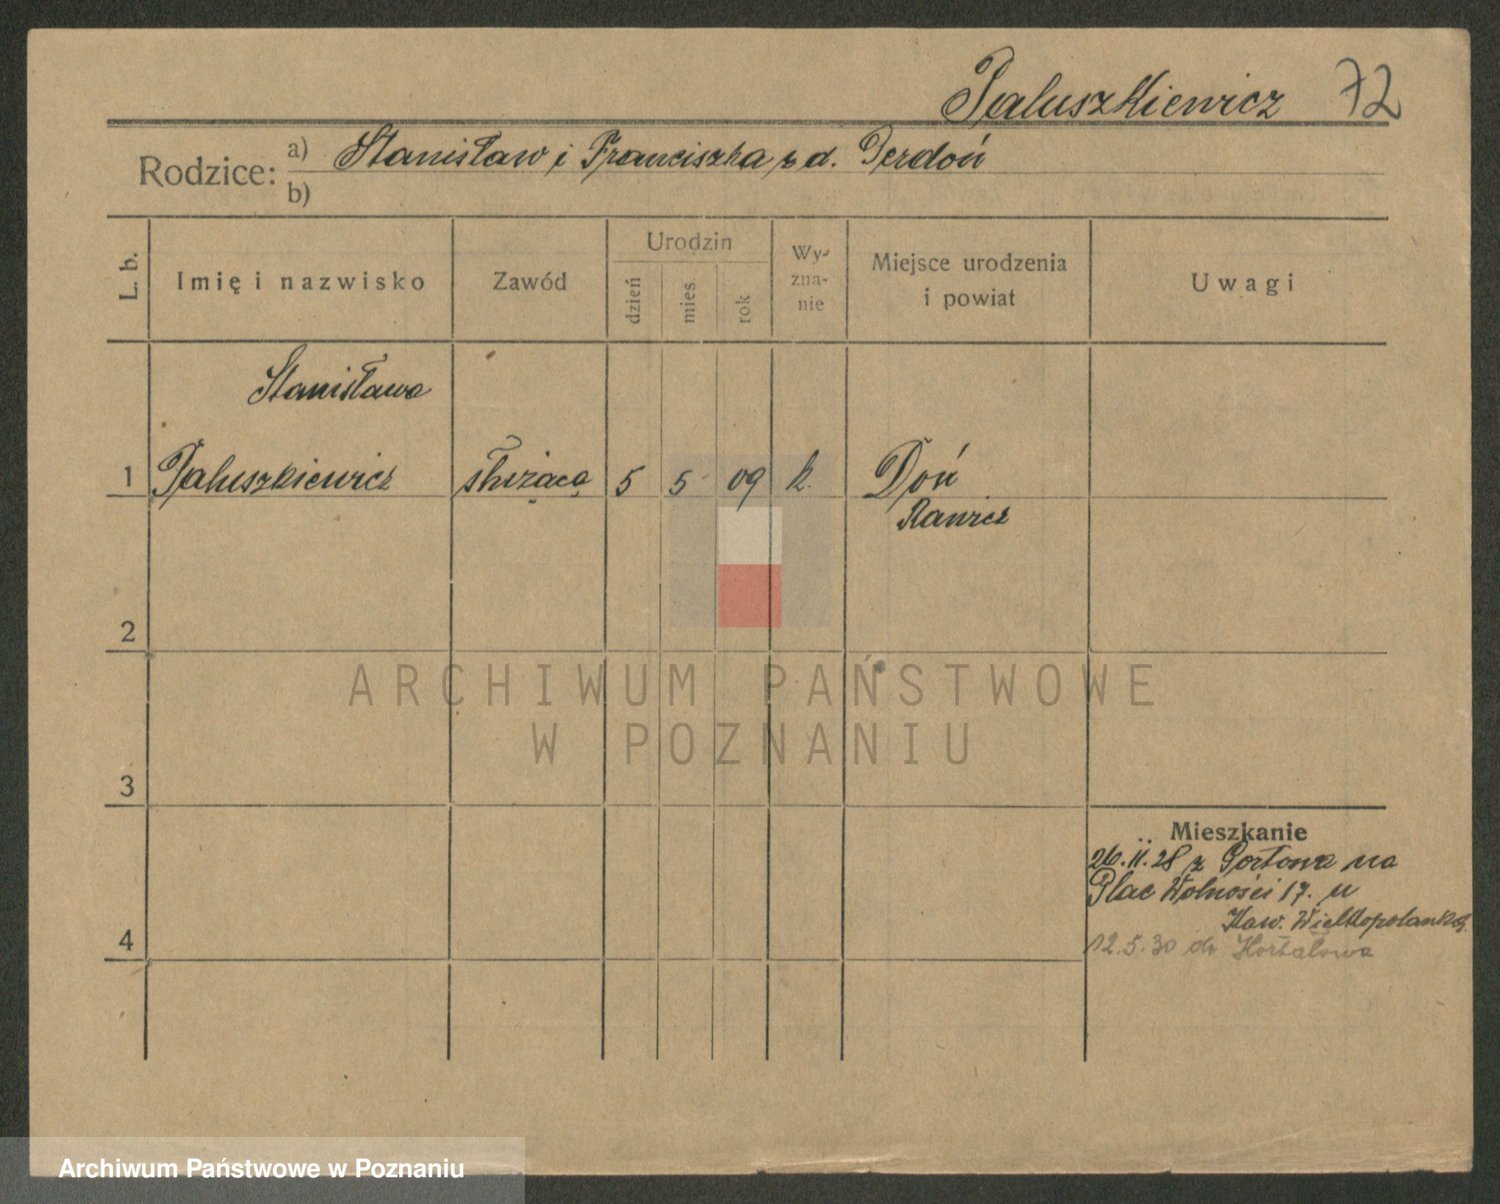 Paluszkiewicz 72
Rodzice: a) Stanisław i Franciszka z d. Derdoń
b)
L. b. Imię i nazwisko Zawód Urodzin dzień mies. rok Wy-zna-nie Miejsce urodzenia i powiat Uwagi
Stanisława
1 Paluszkiewicz służąca 5 5 09 k. Doń
Rawicz
2
ARCHIWUM PAŃSTWOWE
W POZNANIU
3
Mieszkanie
26.11.28 z na
Plac Wolności 17. u
Kaw. Wielkopolanka
4 12.5.30 do
Archiwum Państwowe w Poznaniu